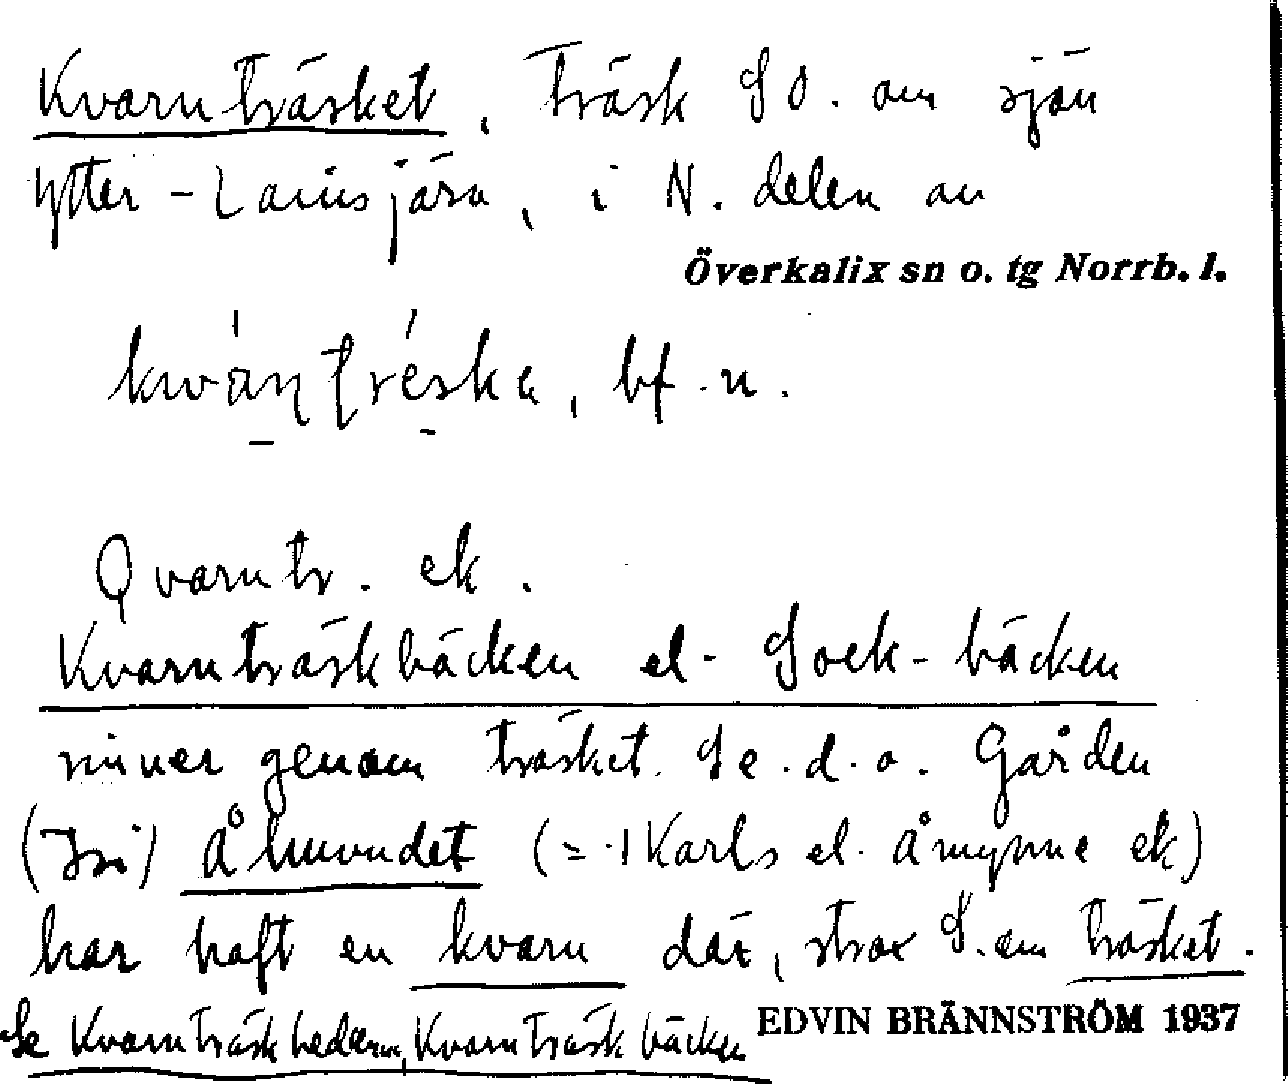 Kvarnträsket, träsk SO. om sjön
Ytter-Lansjärv, i N. delen av
Överkalix sn o. tg Norrb. l.
bf. n.
Qvarntr. ek.
Kvarnträskbäcken el. Sock-bäcken
rinner genom träsket. Se d. o. Gården
Åhuvudet (= Karls el. Åmynne ek)
har haft en kvarn där, strax S. om träsket.
Se Kvarnträskhedarna, Kvarnträskbäcken
EDVIN BRÄNNSTRÖM 1937